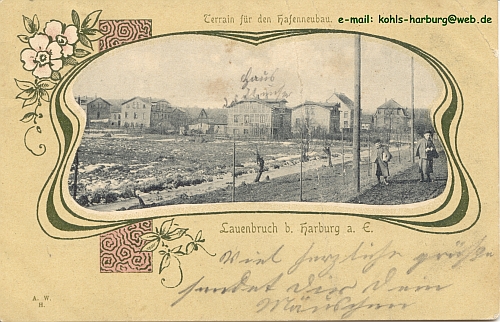 Terrain für den Hafenneubau.
e-mail: kohls-harburg@web.de
Haus
Lauenbruch b. Harburg a. E.
Viel herzliche grüße
sendet Dir Dein
Mäuschen
A. W.
H.